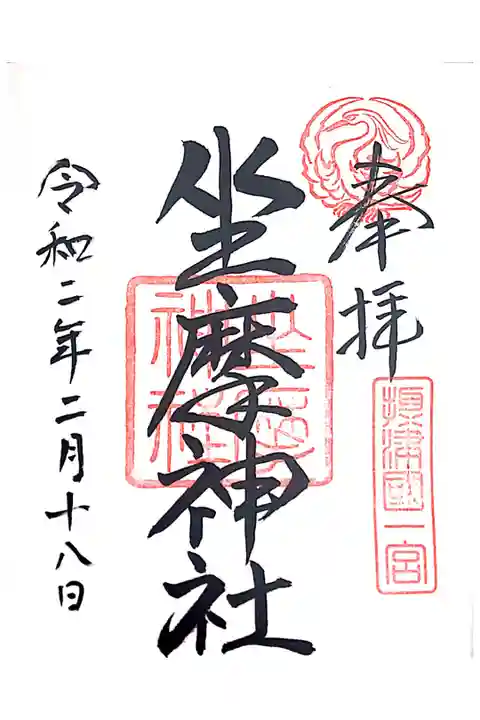 奉拝
摂津國一宮
坐摩神社
坐摩神社
令和二年二月十八日